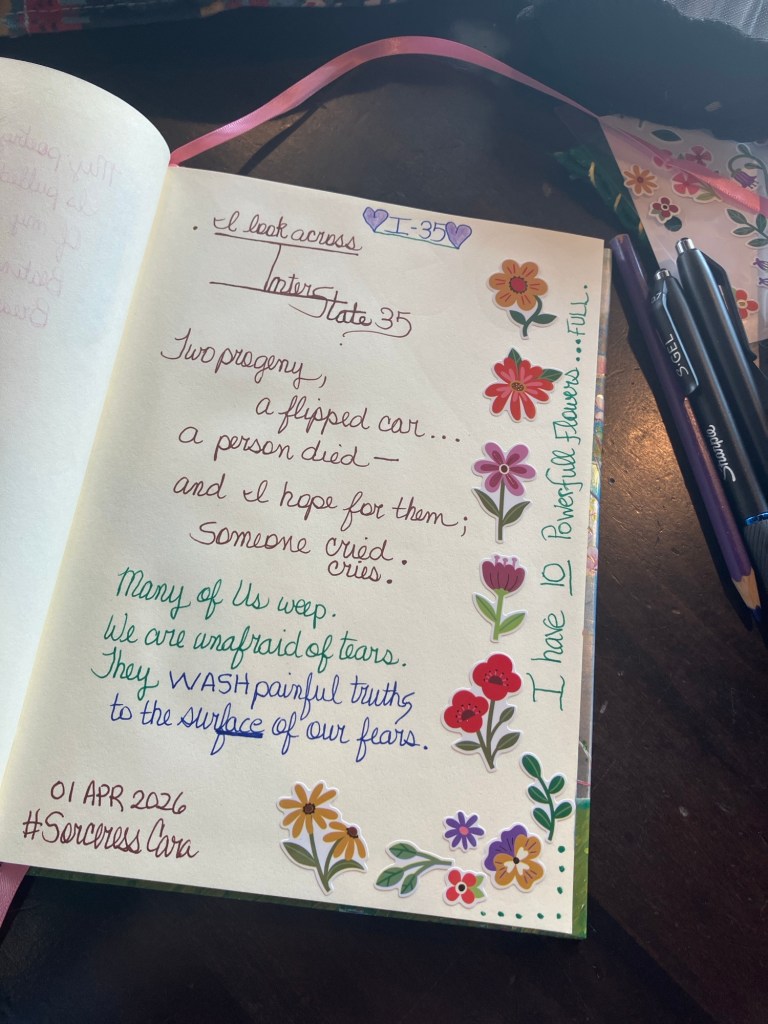 I-35
I look across
InterState 35
Two progeny,
a flipped car...
a person died —
and I hope for them;
Someone cried.
cries.
Many of Us weep.
We are unafraid of tears.
They WASH painful truths
to the surface of our fears.
01 APR 2026
#Sorceress Cara
I have 10 Powerfull Flowers...FULL.
S·GEL
Sharpie